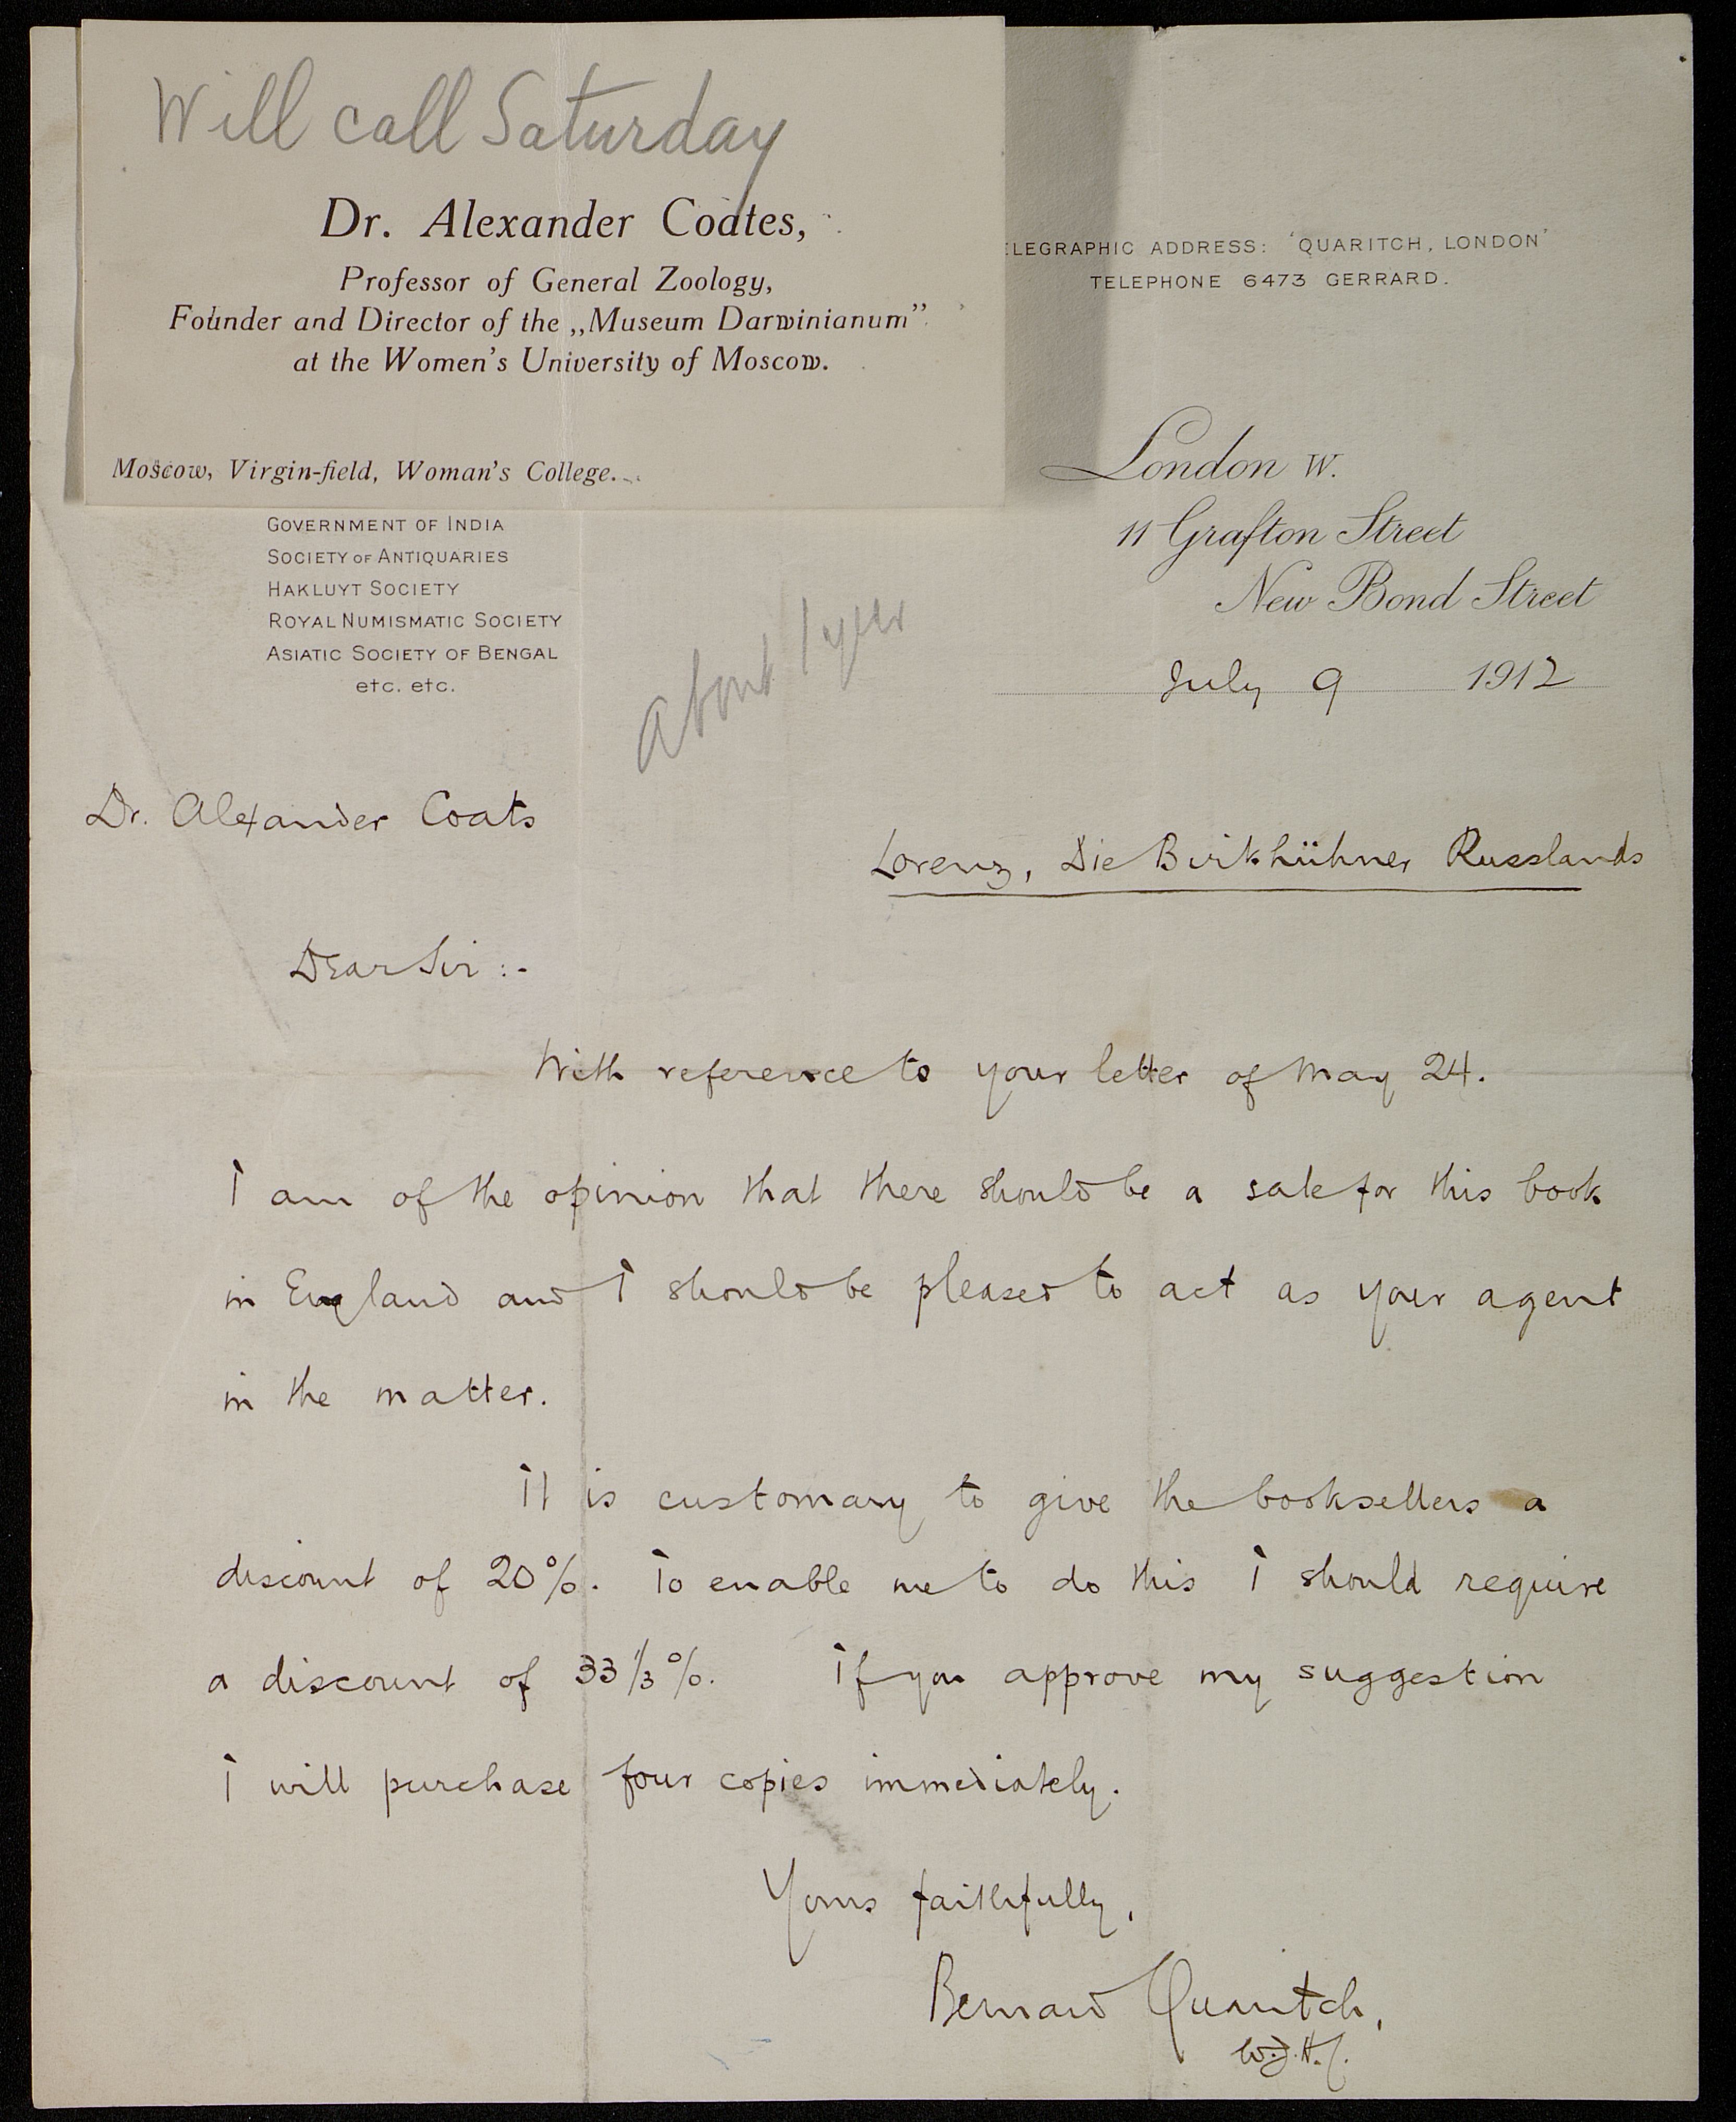 Will call Saturday
Dr. Alexander Coates,
Professor of General Zoology,
Founder and Director of the „Museum Darwinianum”
at the Women's University of Moscow.
Moscow, Virgin-field, Woman's College.
ELEGRAPHIC ADDRESS: 'QUARITCH, LONDON'
TELEPHONE 6473 GERRARD.
London W.
11 Grafton Street
New Bond Street
GOVERNMENT OF INDIA
SOCIETY OF ANTIQUARIES
HAKLUYT SOCIETY
ROYAL NUMISMATIC SOCIETY
ASIATIC SOCIETY OF BENGAL
etc. etc.
About 1 year
July 9 1912
Dr. Alexander Coats
Lorenz, Die Birkhühner Russlands
Dear Sir:-
With reference to your letter of May 24.
I am of the opinion that there should be a sale for this book
in England and I should be pleased to act as your agent
in the matter.
It is customary to give the booksellers a
discount of 20%. To enable me to do this I should require
a discount of 33 1/3 %. If you approve my suggestion
I will purchase four copies immediately.
Yours faithfully,
Bernard Quaritch,